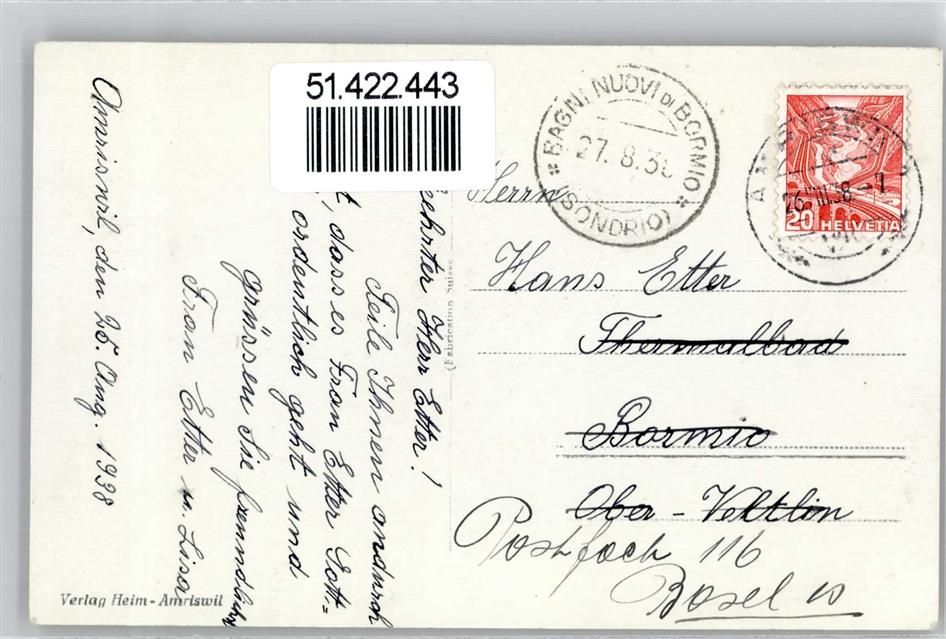 51.422.443
Amriswil, den 25. Aug. 1938
eehrter Herr Etter!
Teile Ihnen andurch
t, dass es Frau Etter Gott-
ordentlich geht und
grüssen Sie freundlich
Frau Etter u. Lisa
Verlag Heim - Amriswil
(Fabrication Suisse)
* BAGNI NUOVI DI BORMIO *
27.8.38
(SONDRIO)
26.VIII.38
20 HELVETIA
Herrn
Hans Etter
Thermalbad
Bormio
Ober - Veltlin
Postfach 116
Basel 10